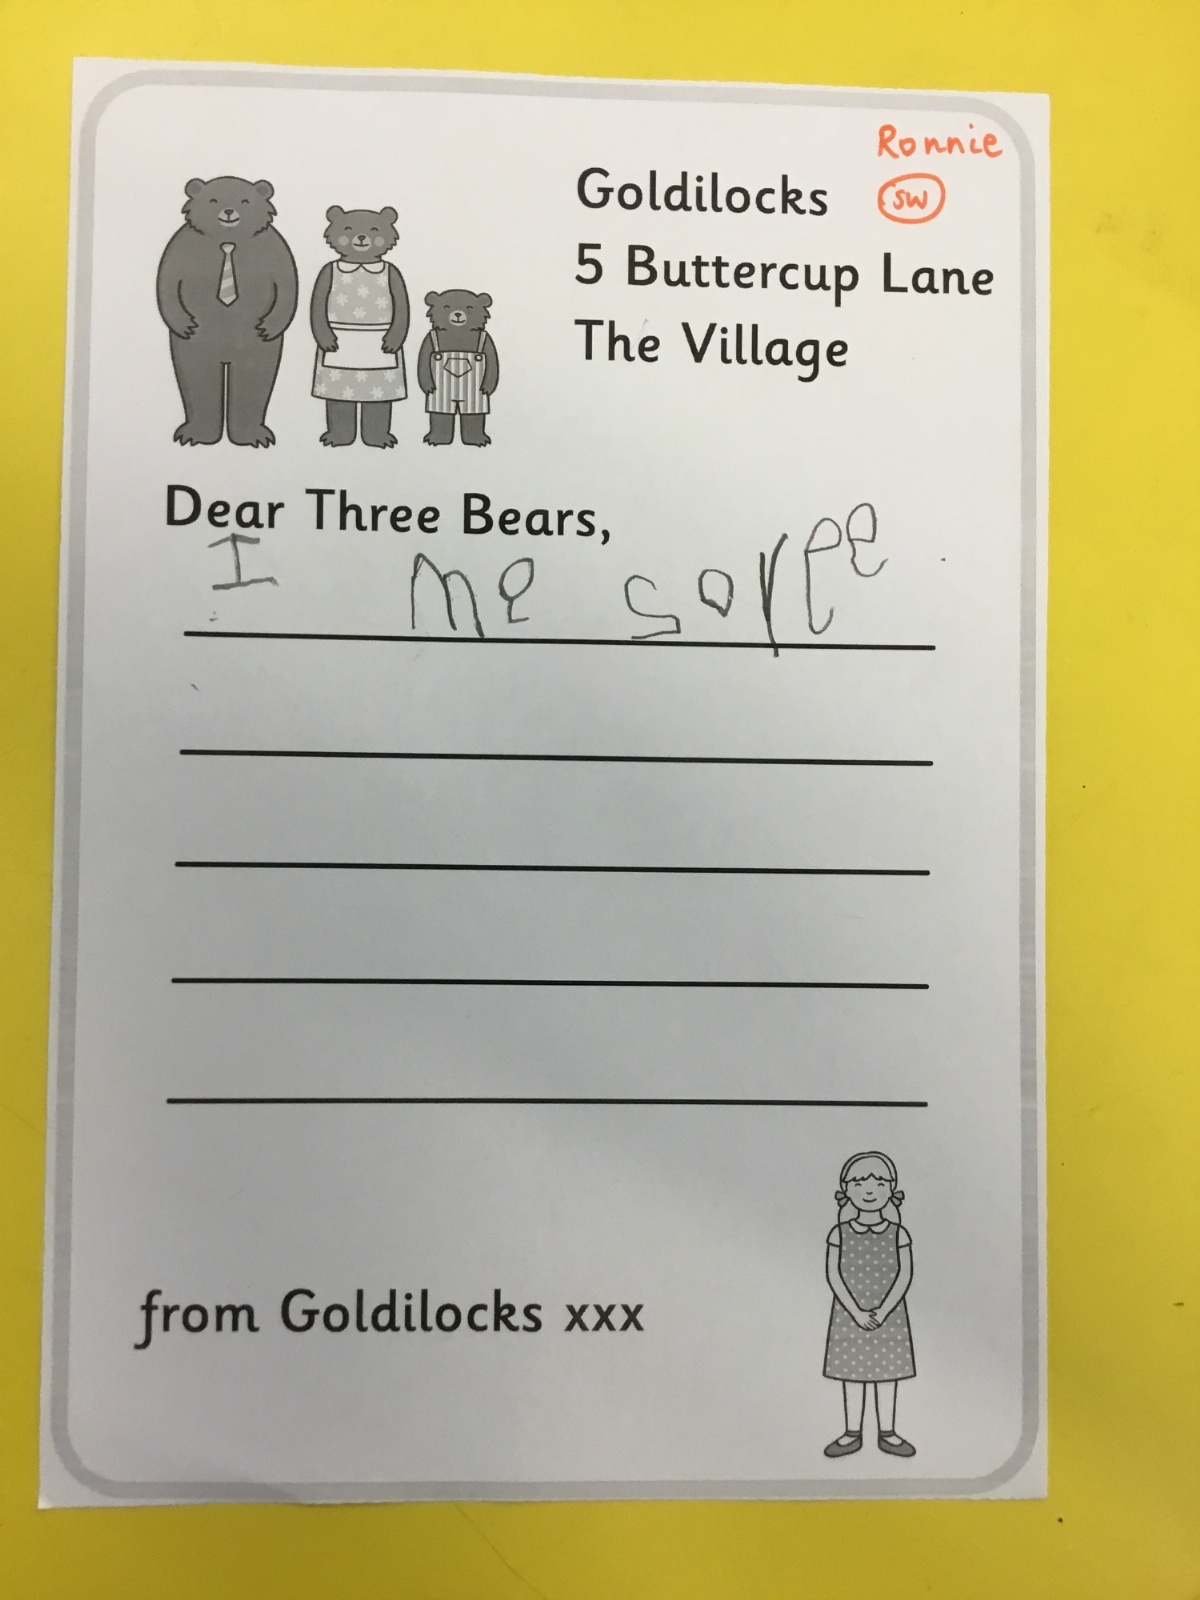 Ronnie
Goldilocks
SW
5 Buttercup Lane
The Village
Dear Three Bears,
I me soree
from Goldilocks xxx